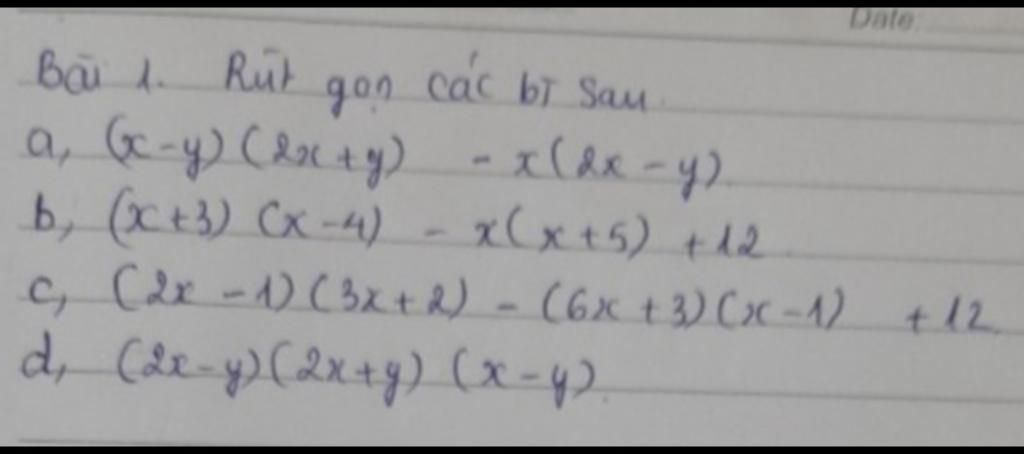 Date:
Bài 1. Rút gọn các bt sau.
a, (x-y)(2x+y) - x(2x-y)
b, (x+3)(x-4) - x(x+5) +12
c, (2x-1)(3x+2) - (6x+3)(x-1) +12
d, (2x-y)(2x+y)(x-y)